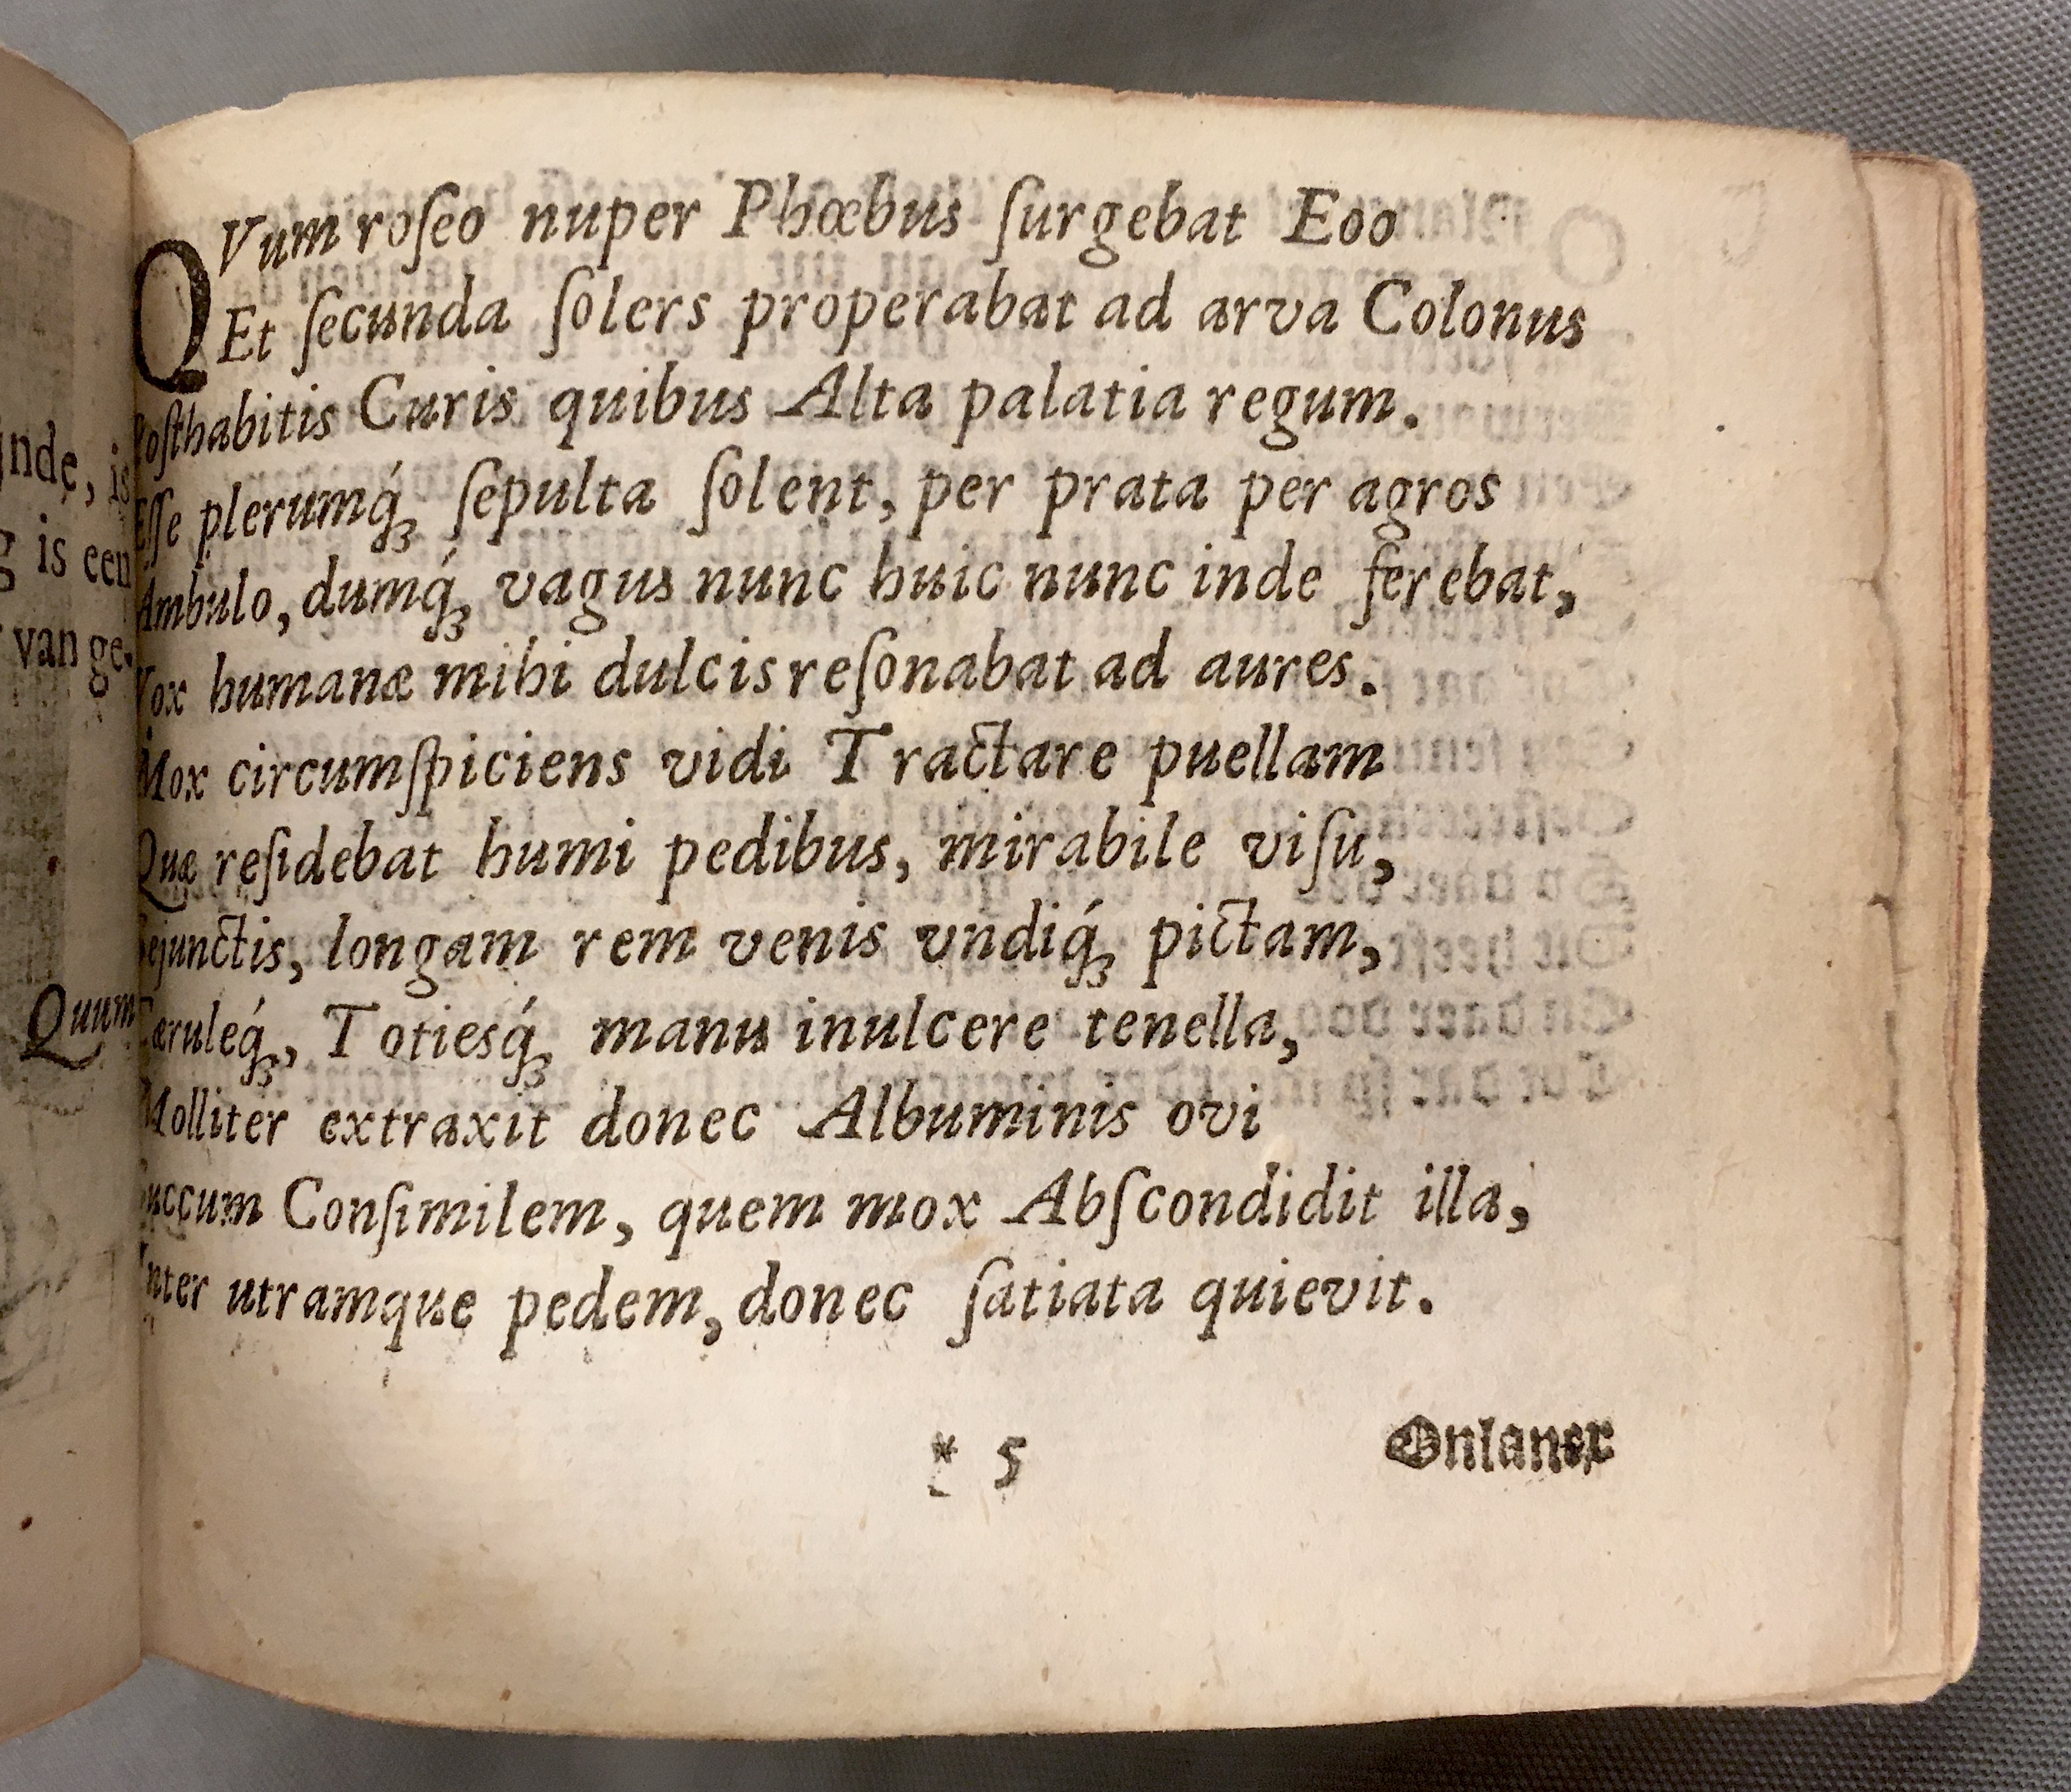 QVum roſeo nuper Phœbus ſurgebat Eoo
Et ſecunda ſolers properabat ad arva Colonus
Poſthabitis Curis quibus Alta palatia regum.
Eſſe plerumq́ꝫ ſepulta ſolent, per prata per agros
Ambulo, dumq́ꝫ vagus nunc huic nunc inde ferebat,
Vox humanæ mihi dulcis reſonabat ad aures.
Mox circumſpiciens vidi Tractare puellam
Quæ reſidebat humi pedibus, mirabile viſu,
Sejunctis, longam rem venis vndiq́ꝫ pictam,
Cæruleq́ꝫ, Totiesq́ꝫ manu inulcere tenella,
Molliter extraxit donec Albuminis ovi
Succum Conſimilem, quem mox Abſcondidit illa,
Inter utramque pedem, donec ſatiata quievit.
* 5 Onlancx
inde, is
g is een
van ge-
Quum